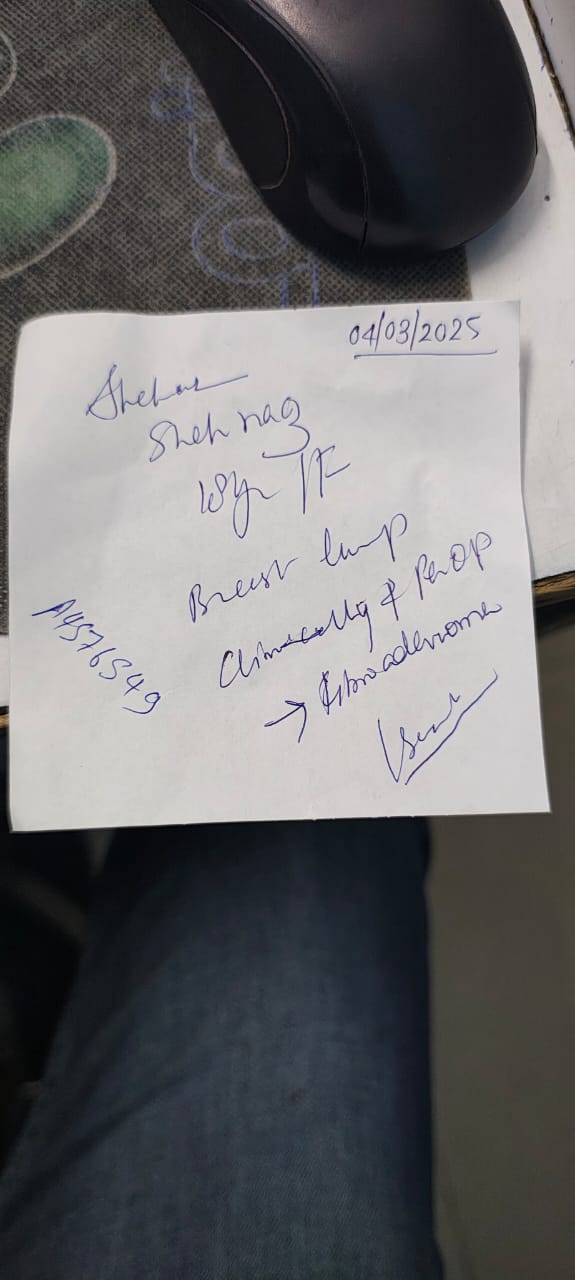 04/03/2025
Sheh naz
18yr /F
Breast lump
Clinically & PerOP
→ fibroadenoma
A4576549